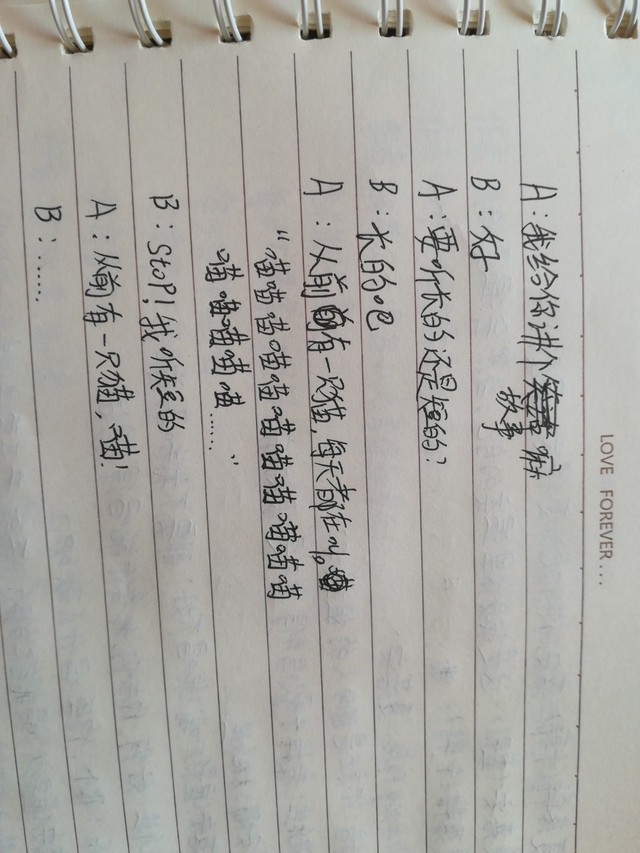 LOVE FOREVER...
A：我给你讲个故事嘛
B：好
A：要听长的还是短的？
B：长的吧
A：从前有一只猫，每天都在叫。
“喵喵喵喵喵喵喵喵喵喵
喵喵喵喵喵……”
B：STOP！我听短的
A：从前有一只猫，喵！
B：……